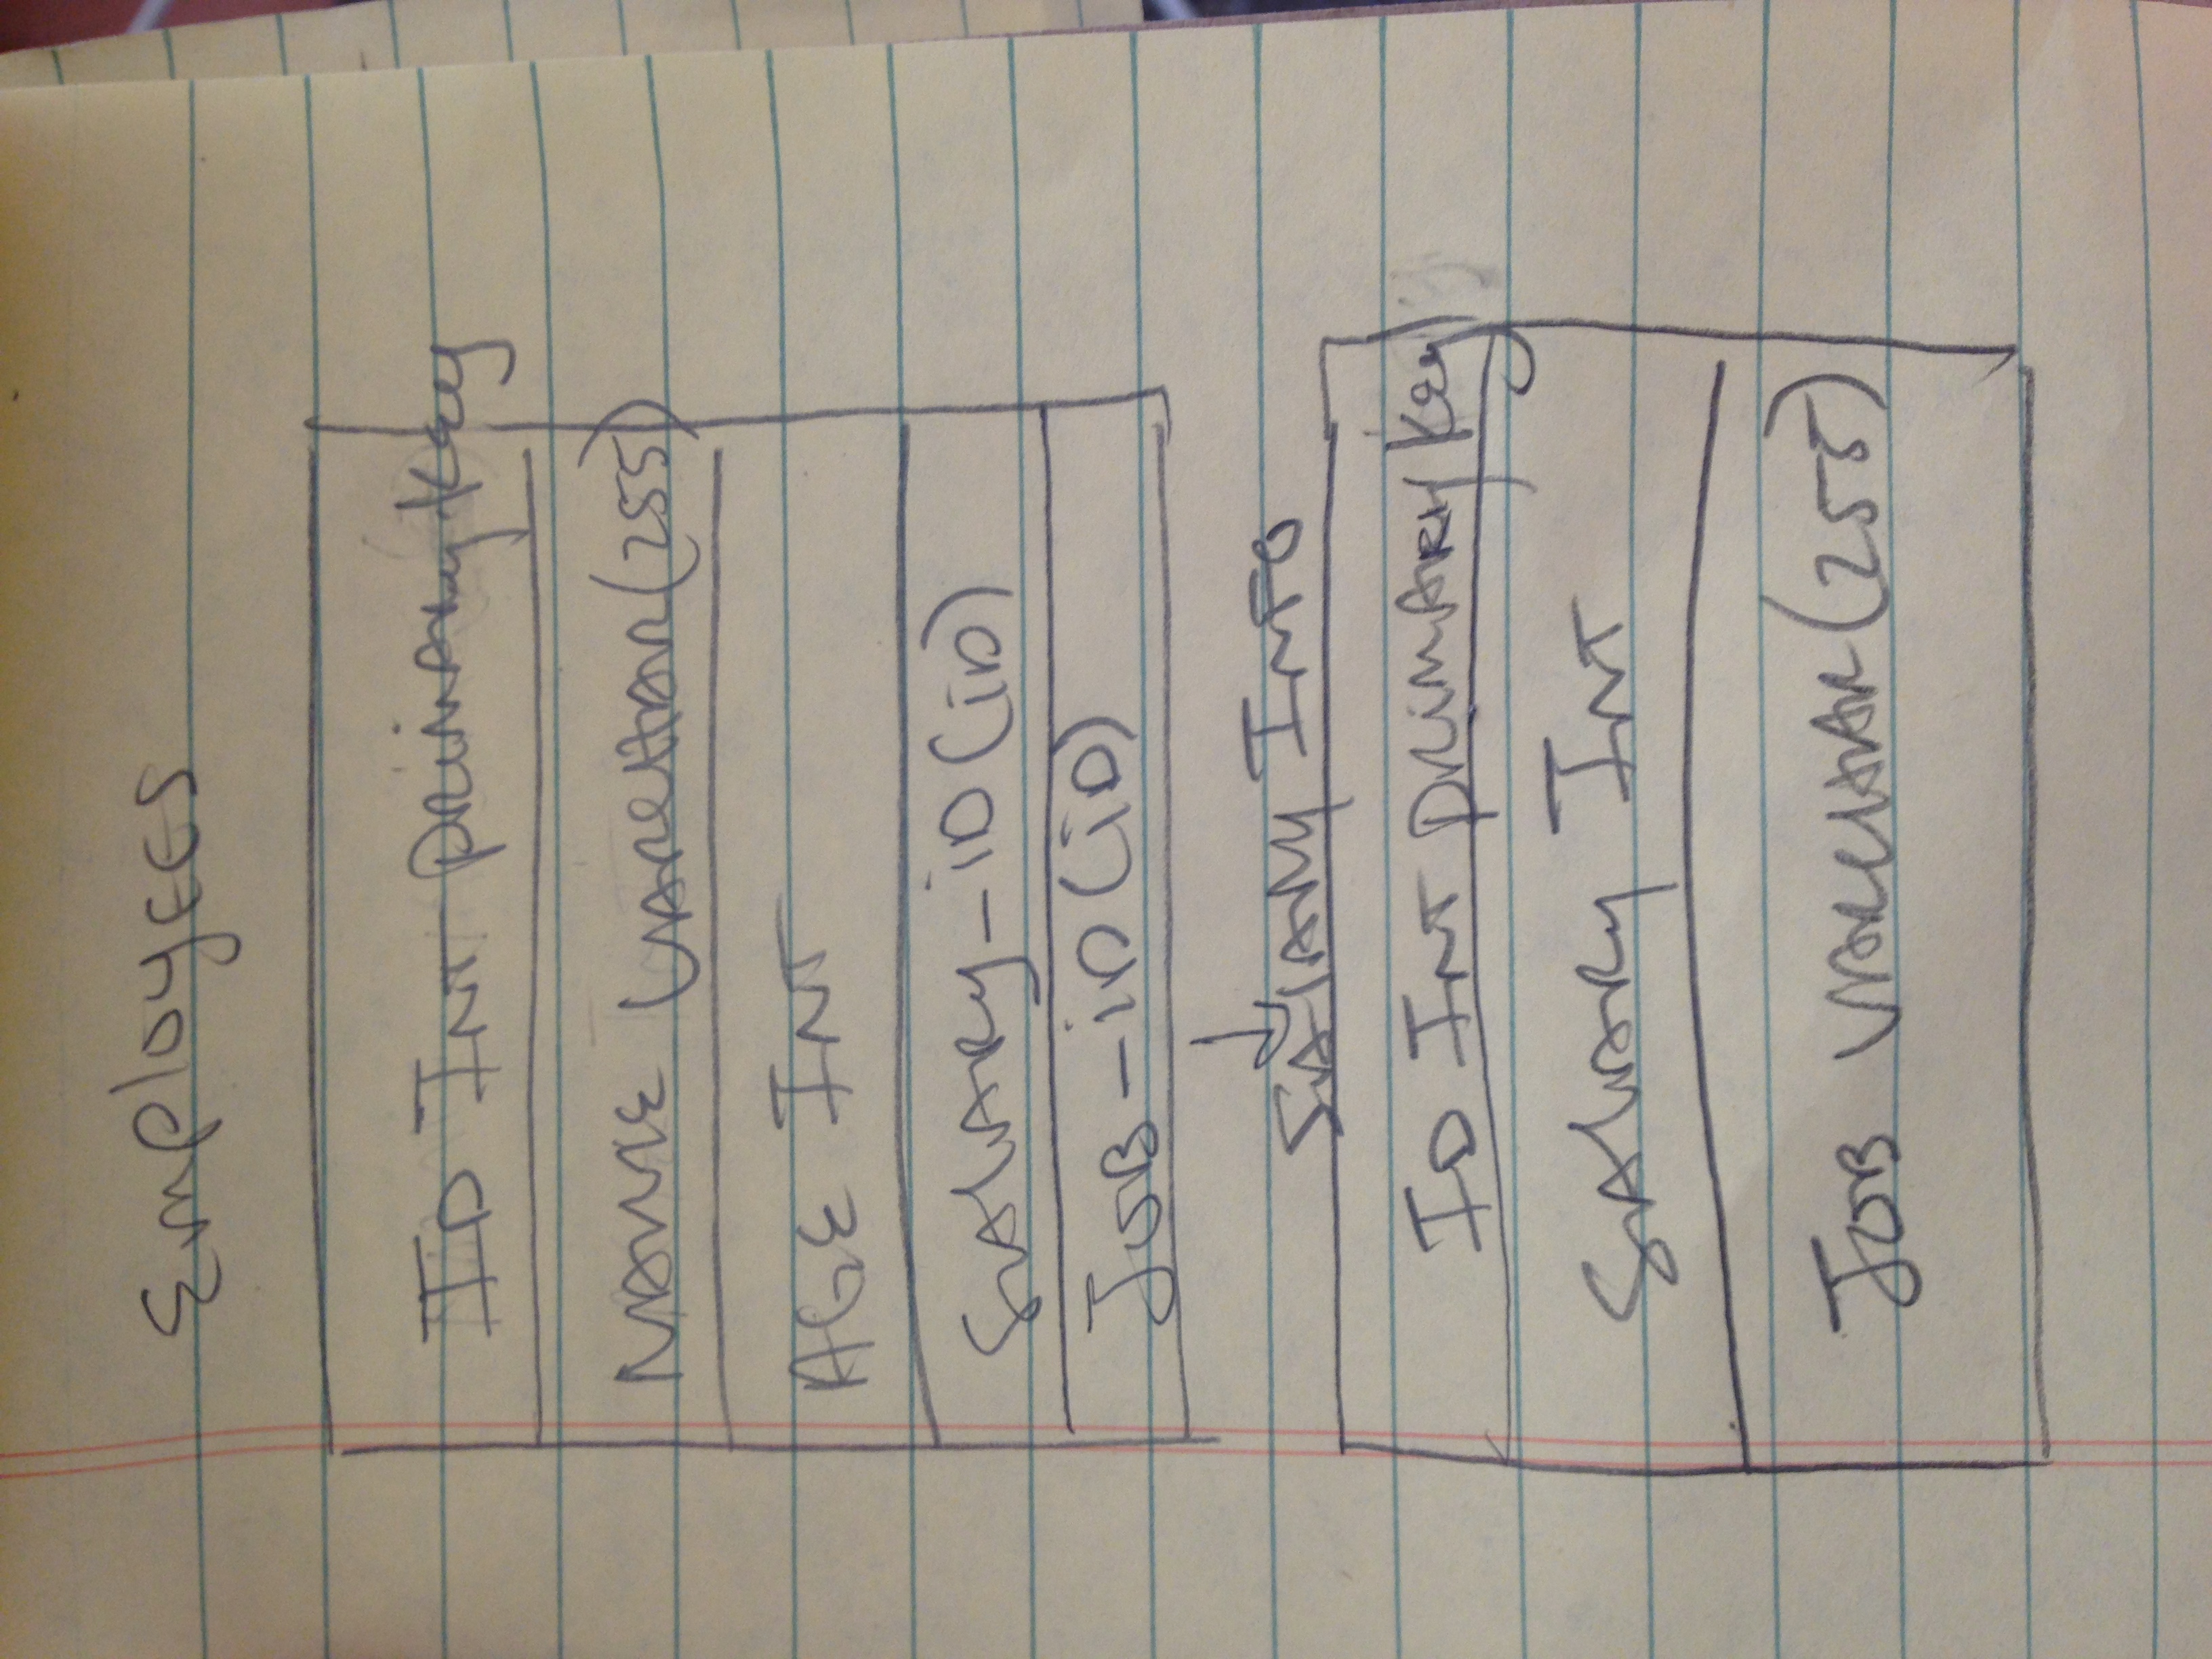 EmployEES
ID INT primary key
NAME VARCHAR(255)
AGE INT
SALARY-iD(iD)
JOB-iD(iD)
SALARY INFO
ID INT primARy key
SALARY INT
JOB VARCHAR(255)